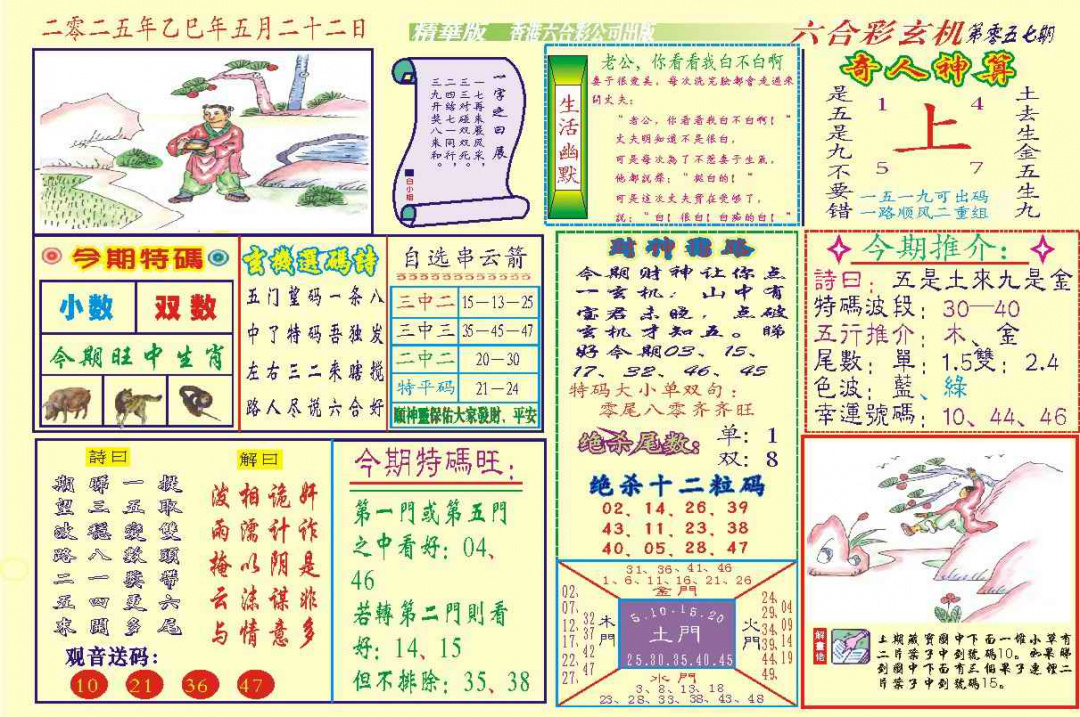 二零二五年乙巳年五月二十二日
精華版 香港六合彩公司出版
六合彩玄机第零五七期
一字之曰展
一七再来展风采，
二三对双双死，
三四结碰同行，
九开奖八一来和。
白小姐
生活幽默
老公，你看看我白不白啊
妻子很爱美，每次洗完脸都会走过来
问丈夫：
“老公，你看看我白不白啊！”
丈夫明知道不是很白，
可是每次为了不惹妻子生气，
他都说惨：“挺白的！”
可是这次丈夫实在受够了，
说：“白！很白！白痴的白！”
奇人神算
是五是九不要错
1 4
上
5 7
土去生金五生九
一五一九可出码
一路顺风二重组
今期特碼
小数 双数
今期旺中生肖
玄機選碼詩
五门望码一条八
中了特码吾独发
左右三二来瞎搅
路人尽说六合好
自选串云箭
三中二 15—13—25
三中三 35—45—47
二中二 20—30
特平码 21—24
顺神靈保佑大家發財、平安
今期财神让你点
一玄机：山中有
宝君未晓，点破
玄机才知五。睇
好今期03、15、
17、32、46、45
特码大小单双句：
零尾八零齐齐旺
绝杀尾数： 单：1
双：8
绝杀十二粒码
02、14、26、39
43、11、23、38
40、05、28、47
今期推介：
詩曰：五是土來九是金
特碼波段：30—40
五行推介：木、金
尾數：單：1.5雙：2.4
色波：藍、綠
幸運號碼：10、44、46
詩曰
期望波路二五來
睇三穩八一四開
一五變數獎更多
投取雙頭帶六尾
解曰
波雨掩云与
相濡以沫情
诡计阴谋意
奸诈是非多
观音送码：
10 21 36 47
今期特碼旺：
第一門或第五門
之中看好：04、
46
若轉第二門則看
好：14、15
但不排除：35、38
31、36、41、46
1、6、11、16、21、26
金門
02、07、12、17、22、27、
32、37、42、47
木門
5.10.15.20
土門
25.30.35.40.45
火門
24、29、34、39、44、49、
04、09、14、19
水門
3、8、13、18
23、28、33、38、43、48
解畫佬
上期藏寶圖中下面一堆小草有
二片葉子中到號碼10。如果睇
到圖中下面有三個果子連埋二
片葉子中到號碼15。